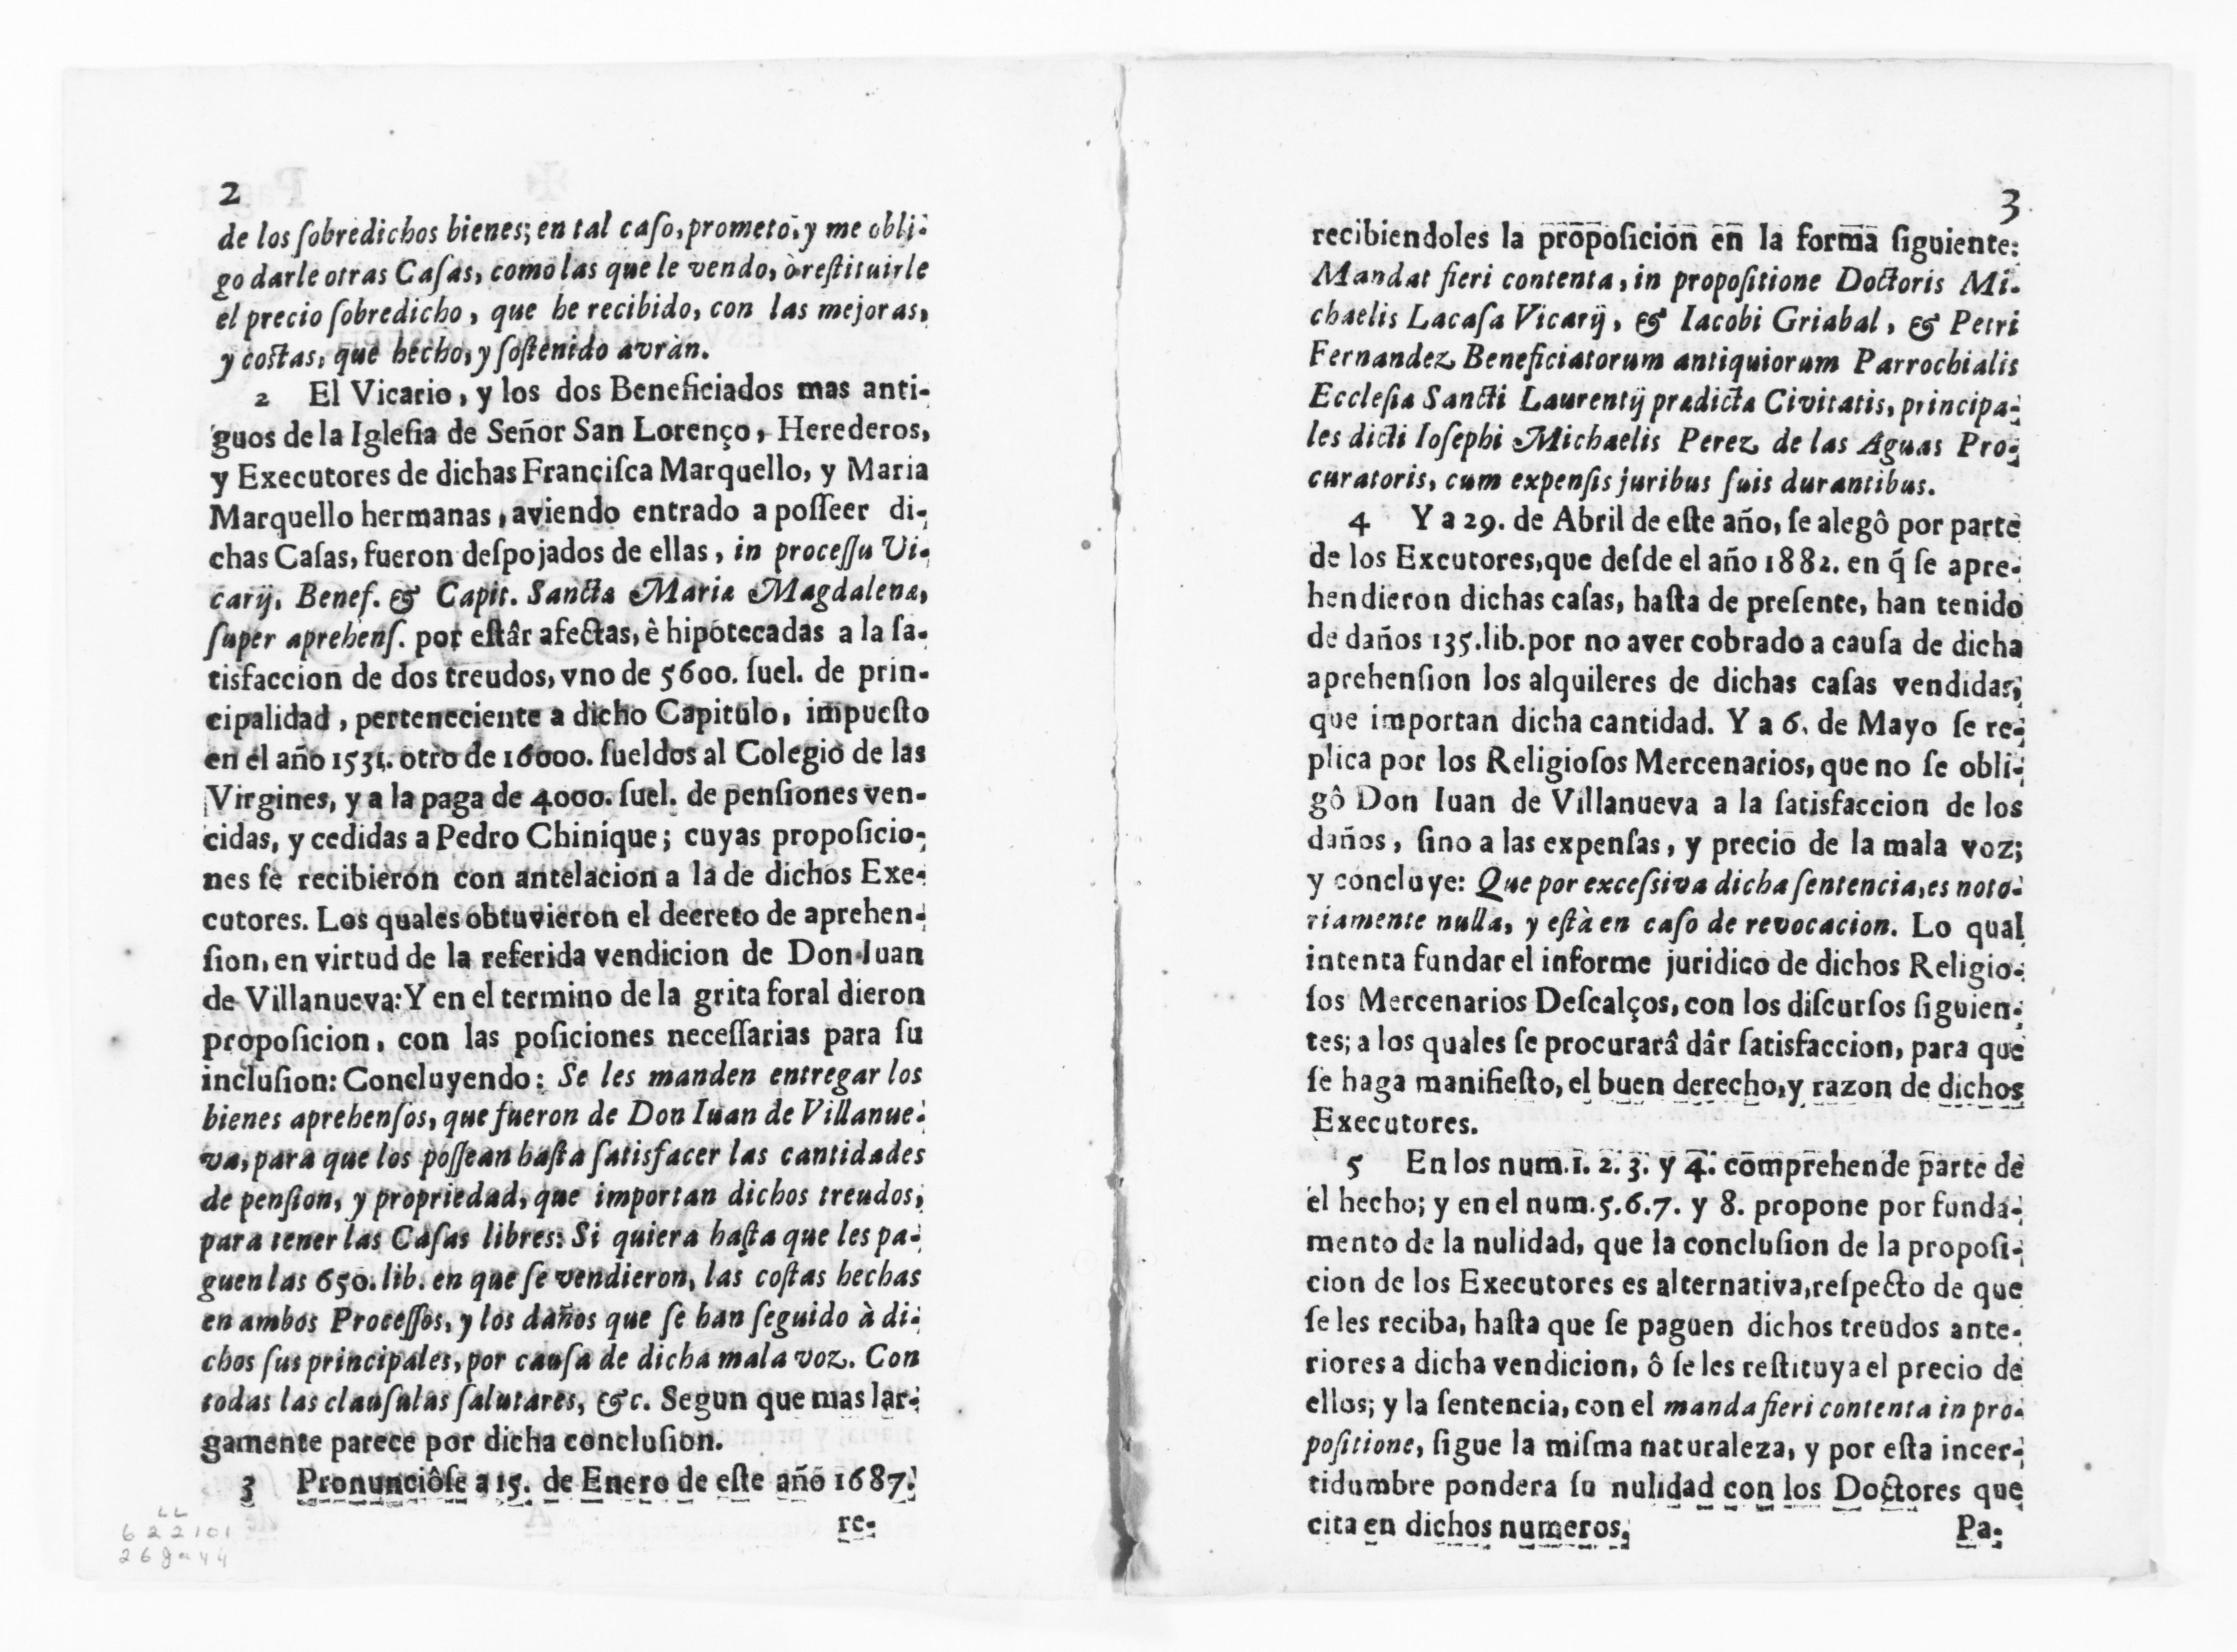 2
de los ſobredichos bienes; en tal caſo, prometo, y me obli-
go darle otras Caſas, como las que le vendo, ò reſtituirle
el precio ſobredicho, que he recibido, con las mejoras,
y coſtas, que hecho, y ſoſtenido avràn.
2 El Vicario, y los dos Beneficiados mas anti-
guos de la Igleſia de Señor San Lorenço, Herederos,
y Executores de dichas Franciſca Marquello, y Maria
Marquello hermanas, aviendo entrado a poſſeer di-
chas Caſas, fueron deſpojados de ellas, in proceſſu Vi-
carij, Benef. & Capit. Sanctæ Mariæ Magdalenæ,
ſuper aprehenſ. por eſtâr afectas, è hipotecadas a la ſa-
tisfaccion de dos treudos, vno de 5600. ſuel. de prin-
cipalidad, perteneciente a dicho Capitulo, impueſto
en el año 1531. otro de 16000. ſueldos al Colegio de las
Virgines, y a la paga de 4000. ſuel. de penſiones ven-
cidas, y cedidas a Pedro Chinique; cuyas propoſicio-
nes ſe recibieron con antelacion a la de dichos Exe-
cutores. Los quales obtuvieron el decreto de aprehen-
ſion, en virtud de la referida vendicion de Don Iuan
de Villanueva: Y en el termino de la grita foral dieron
propoſicion, con las poſiciones neceſſarias para ſu
incluſion: Concluyendo: Se les manden entregar los
bienes aprehenſos, que fueron de Don Iuan de Villanue-
va, para que los poſſean haſta ſatisfacer las cantidades
de penſion, y propriedad, que importan dichos treudos,
para tener las Caſas libres: Si quiera haſta que les pa-
guen las 650. lib. en que ſe vendieron, las coſtas hechas
en ambos Proceſſos, y los daños que ſe han ſeguido à di-
chos ſus principales, por cauſa de dicha mala voz. Con
todas las clauſulas ſalutares, &c. Segun que mas lar-
gamente parece por dicha concluſion.
3 Pronunciôſe a 15. de Enero de eſte año 1687.
re-
LL
622101
26 Ja 44
3
recibiendoles la propoſicion en la forma ſiguiente:
Mandat fieri contenta, in propoſitione Doctoris Mi-
chaelis Lacaſa Vicarij, & Iacobi Griabal, & Petri
Fernandez Beneficiatorum antiquiorum Parrochialis
Eccleſiæ Sancti Laurentij prædictæ Civitatis, principa-
les dicti Ioſephi Michaelis Perez de las Aguas Pro-
curatoris, cum expenſis juribus ſuis durantibus.
4 Y a 29. de Abril de eſte año, ſe alegô por parte
de los Excutores, que deſde el año 1882. en q́ ſe apre-
hendieron dichas caſas, haſta de preſente, han tenido
de daños 135. lib. por no aver cobrado a cauſa de dicha
aprehenſion los alquileres de dichas caſas vendidas,
que importan dicha cantidad. Y a 6. de Mayo ſe re-
plica por los Religioſos Mercenarios, que no ſe obli-
gô Don Iuan de Villanueva a la ſatisfaccion de los
daños, ſino a las expenſas, y precio de la mala voz;
y concluye: Que por exceſsiva dicha ſentencia, es noto-
riamente nulla, y eſtà en caſo de revocacion. Lo qual
intenta fundar el informe juridico de dichos Religio-
ſos Mercenarios Deſcalços, con los diſcurſos ſiguien-
tes; a los quales ſe procurarâ dâr ſatisfaccion, para que
ſe haga manifieſto, el buen derecho, y razon de dichos
Executores.
5 En los num. 1. 2. 3. y 4. comprehende parte de
el hecho; y en el num. 5. 6. 7. y 8. propone por funda-
mento de la nulidad, que la concluſion de la propoſi-
cion de los Executores es alternativa, reſpecto de que
ſe les reciba, haſta que ſe paguen dichos treudos ante-
riores a dicha vendicion, ô ſe les reſtituya el precio de
ellos; y la ſentencia, con el manda fieri contenta in pro-
poſitione, ſigue la miſma naturaleza, y por eſta incer-
tidumbre pondera ſu nulidad con los Doctores que
cita en dichos numeros.
Pa-